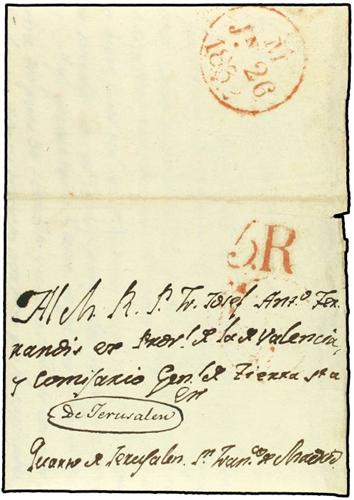 M
JN. 26
5R
Al M. R. P. Fr. Josef Anto. Fer-
nandis ex Prov.l de la de Valencia,
y Comisario Gen.l de Tierra Sta
en
De Jerusalen
Quarto de Jerusalen Sn. Franco. de Madrid